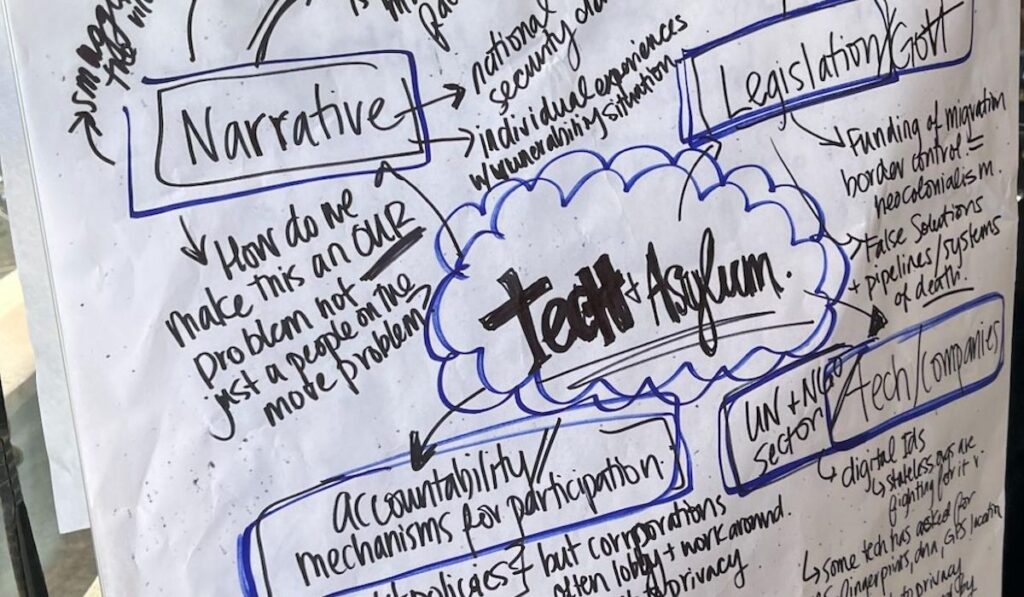 smugg
the
is
Narrative
national
security
individual experiences
w/vunerability situation
How do we
make this an OUR
problem not
just a people on the
move problem
Tech + Asylum.
Legislation/Govt
Funding of migration
border control =
neocolonialism.
False Solutions
+ pipelines/systems
of death.
Tech/Companies
UN + NGO
sector
digital Ids
stateless are
fighting for it
some tech has asked for
fingerprints, dna, GPS location
privacy
accountability/
mechanisms for participation.
policies but corporations
often lobby + work around.
privacy